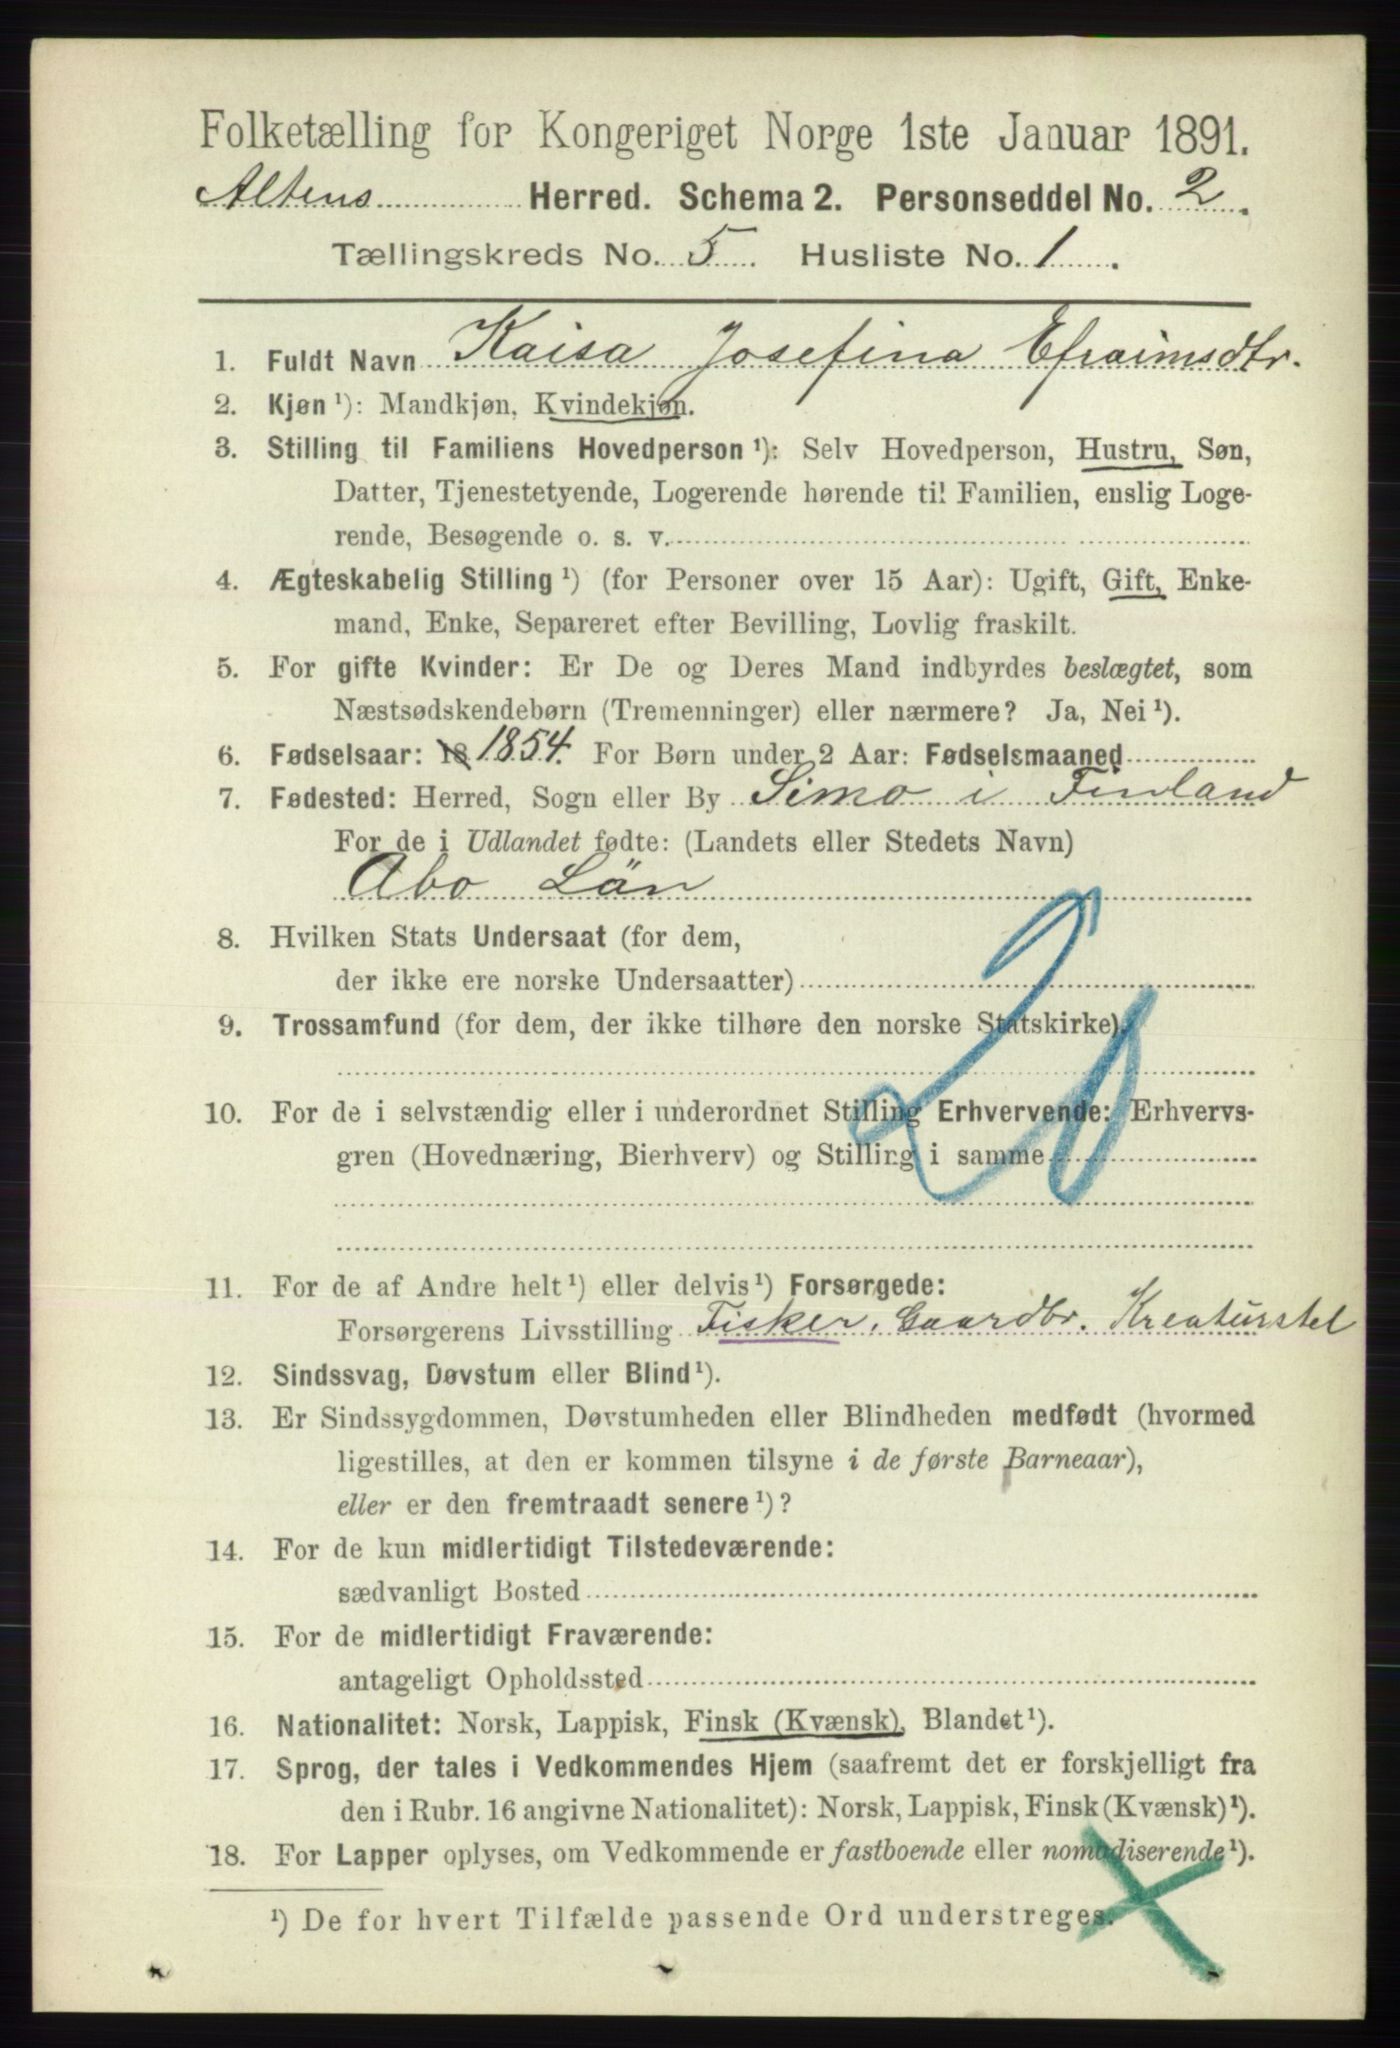 Folketælling for Kongeriget Norge 1ste Januar 1891.
Altens Herred. Schema 2. Personseddel No. 2.
Tællingskreds No. 5. Husliste No. 1.
1. Fuldt Navn Kaisa Josefina Efraimsdtr.
2. Kjøn ¹): Mandkjøn, Kvindekjøn.
3. Stilling til Familiens Hovedperson ¹): Selv Hovedperson, Hustru, Søn,
Datter, Tjenestetyende, Logerende hørende til Familien, enslig Loge-
rende, Besøgende o. s. v.
4. Ægteskabelig Stilling ¹) (for Personer over 15 Aar): Ugift, Gift, Enke-
mand, Enke, Separeret efter Bevilling, Lovlig fraskilt.
5. For gifte Kvinder: Er De og Deres Mand indbyrdes beslægtet, som
Næstsødskendebørn (Tremenninger) eller nærmere? Ja, Nei ¹).
6. Fødselsaar: 18 1854. For Børn under 2 Aar: Fødselsmaaned
7. Fødested: Herred, Sogn eller By Simo i Finland
For de i Udlandet fødte: (Landets eller Stedets Navn)
Abo Län
8. Hvilken Stats Undersaat (for dem,
der ikke ere norske Undersaatter)
9. Trossamfund (for dem, der ikke tilhøre den norske Statskirke).
20
10. For de i selvstændig eller i underordnet Stilling Erhvervende: Erhvervs-
gren (Hovednæring, Bierhverv) og Stilling i samme
11. For de af Andre helt ¹) eller delvis ¹) Forsørgede:
Forsørgerens Livsstilling Fisker, Gaardbr. Kreaturstel
12. Sindssvag, Døvstum eller Blind ¹).
13. Er Sindssygdommen, Døvstumheden eller Blindheden medfødt (hvormed
ligestilles, at den er kommen tilsyne i de første Barneaar),
eller er den fremtraadt senere ¹)?
14. For de kun midlertidigt Tilstedeværende:
sædvanligt Bosted
15. For de midlertidigt Fraværende:
antageligt Opholdssted
16. Nationalitet: Norsk, Lappisk, Finsk (Kvænsk), Blandet ¹).
17. Sprog, der tales i Vedkommendes Hjem (saafremt det er forskjelligt fra
den i Rubr. 16 angivne Nationalitet): Norsk, Lappisk, Finsk (Kvænsk) ¹).
18. For Lapper oplyses, om Vedkommende er fastboende eller nomadiserende ¹).
¹) De for hvert Tilfælde passende Ord understreges.